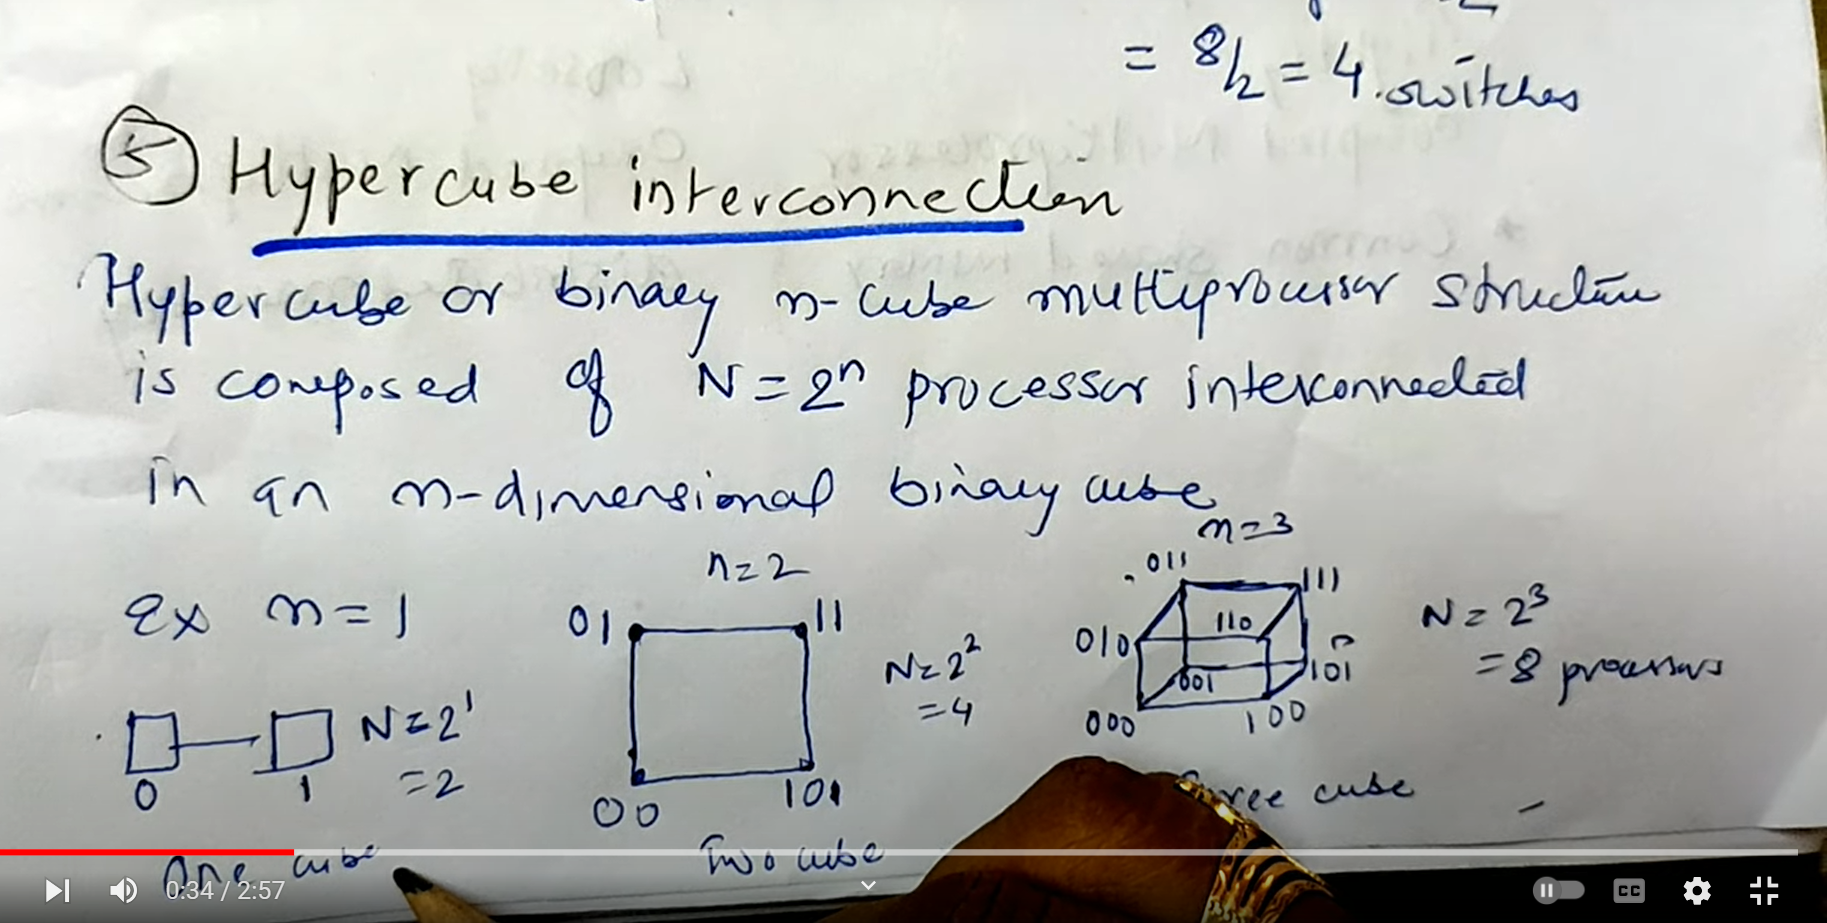 = 8/2 = 4 switches
5 Hypercube interconnection
Hypercube or binary n-cube multiprocessor structure
is composed of N = 2ⁿ processor interconnected
in an n-dimensional binary cube
Ex n = 1
0 1
N = 2¹
= 2
One cube
n = 2
01 11
00 10
N = 2²
= 4
Two cube
n = 3
011 111
010 110
001 101
000 100
N = 2³
= 8 processors
Three cube
0:34 / 2:57
CC